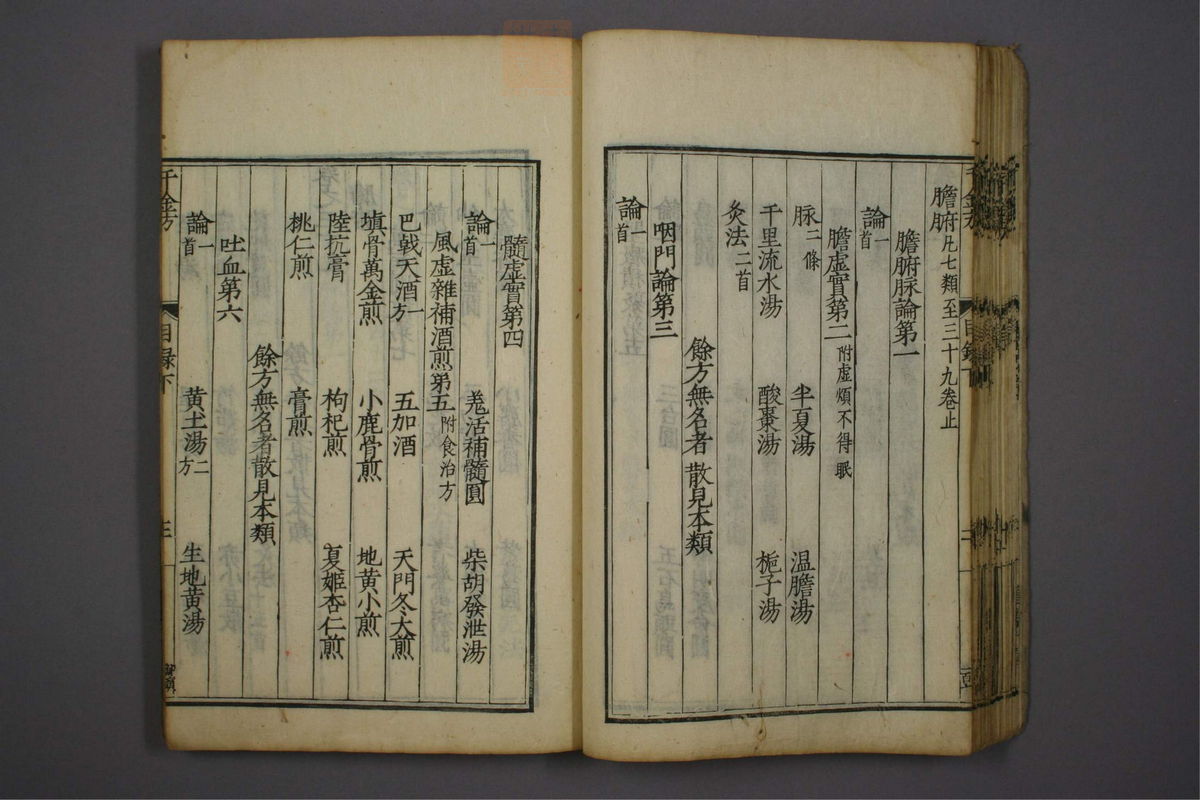 膽腑凡七類至三十九卷止
膽腑脉論第一
論一首
膽虛實第二附虛煩不得眠
脉二條 半夏湯 温膽湯
千里流水湯 酸棗湯 梔子湯
灸法二首
餘方無名者散見本類
咽門論第三
論一首
髓虛實第四
論一首 羗活補髓圓 柴胡發泄湯
風虛雜補酒煎第五附食治方
巴戟天酒一方 五加酒 天門冬大煎
塡骨萬金煎 小鹿骨煎 地黄小煎
陸抗膏 枸杞煎 夏姬杏仁煎
桃仁煎 膏煎
餘方無名者散見本類
吐血第六
論一首 黄土湯二方 生地黄湯
千金方 目録下